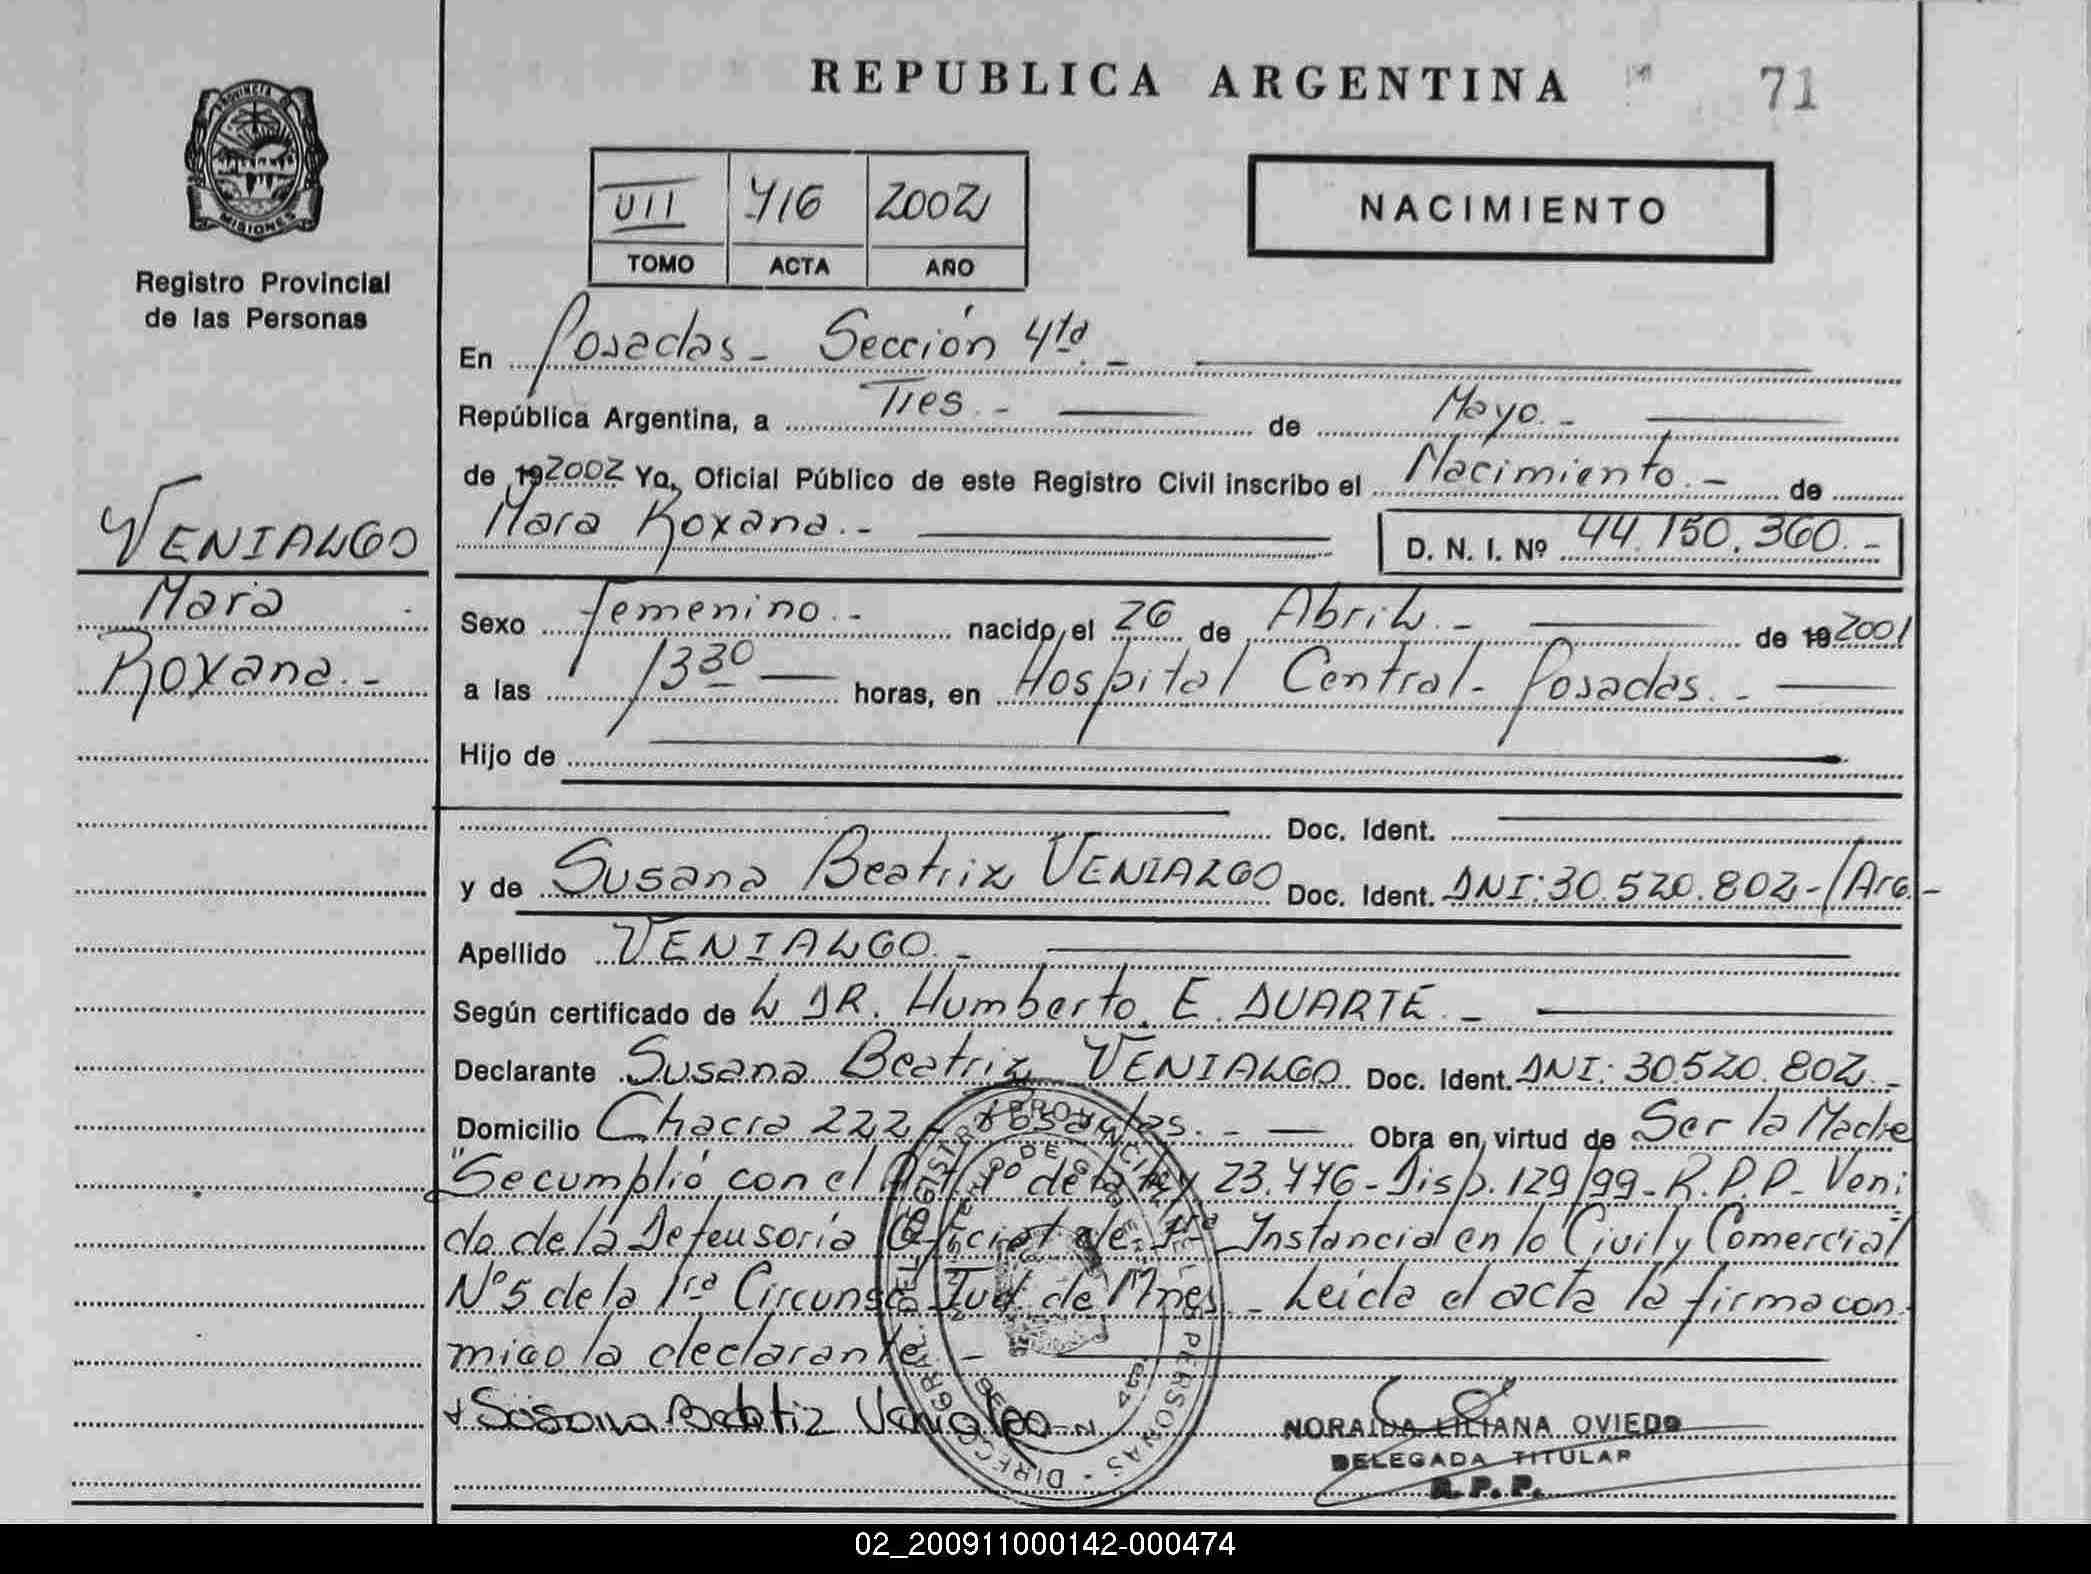 REPUBLICA ARGENTINA 71
PROVINCIA
MISIONES
Registro Provincial
de las Personas
VII 416 2002
TOMO ACTA AÑO
NACIMIENTO
En Posadas - Sección 4ta. -
República Argentina, a Tres - de Mayo. -
de 19 2002 Yo, Oficial Público de este Registro Civil inscribo el Nacimiento. - de
Mara Roxana. - D. N. I. Nº 44.150.360. -
VENIALGO
Mara
Roxana. -
Sexo femenino. - nacido el 26 de Abril. - de 19 2001
a las 13 30 horas, en Hospital Central - Posadas. -
Hijo de
Doc. Ident.
y de Susana Beatriz VENIALGO Doc. Ident. DNI: 30.520.802 - /Arg. -
Apellido VENIALGO. -
Según certificado de L DR. Humberto E. DUARTE. -
Declarante Susana Beatriz VENIALGO Doc. Ident. DNI: 30520.802. -
Domicilio Chacra 222 - Posadas. - Obra en virtud de Ser la Madre
"Se cumplió con el Art 1º de la Ley 23.776 - Disp. 129/99 - R.P.P - Veni
do de la Defensoría Oficial de 1ra Instancia en lo Civil y Comercial
Nº 5 de la 1ra Circunsc. Jud. de Mnes. - Leída el acta la firma con
migo la declarante. -
Susana Beatriz Venialgo
NORAIDA LILIANA OVIEDO
DELEGADA TITULAR
R. P. P.
02_200911000142-000474